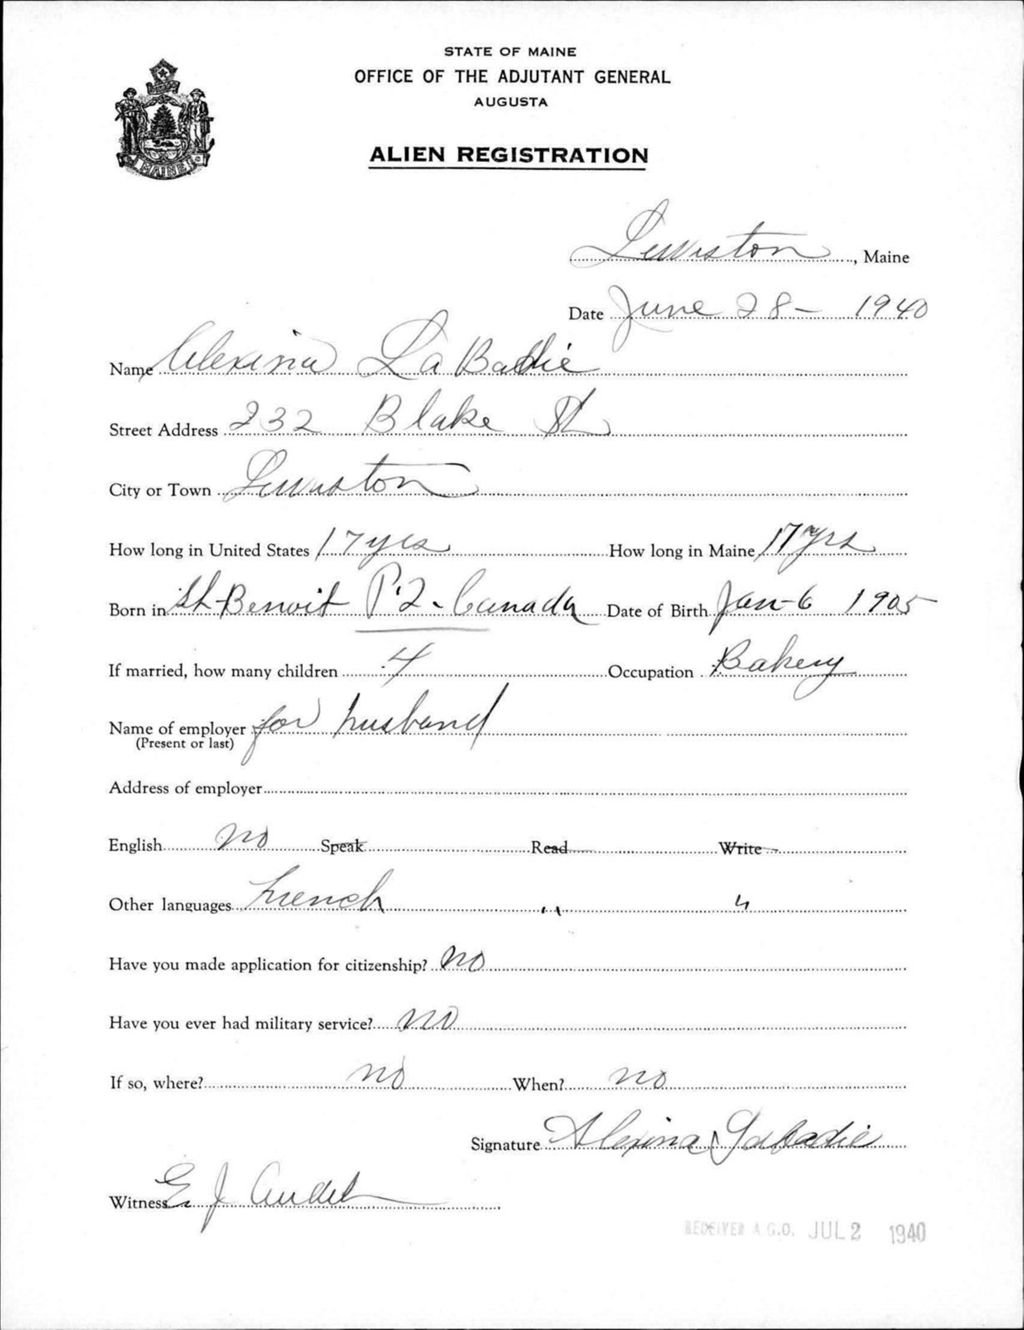 STATE OF MAINE
OFFICE OF THE ADJUTANT GENERAL
AUGUSTA
MAINE
ALIEN REGISTRATION
Lewiston, Maine
Date June 28 - 1940
Name Alexina La Badie
Street Address 232 Blake St
City or Town Lewiston
How long in United States 17 yrs How long in Maine 17 yrs
Born in St-Benoit P.Q. Canada Date of Birth Jan-6 1905
If married, how many children 4 Occupation Bakery
Name of employer for husband
(Present or last)
Address of employer
English no Speak Read Write
Other languages French " "
Have you made application for citizenship? no
Have you ever had military service? no
If so, where? no When? no
Signature Alexina Labadie
Witness E J
RECEIVED A.G.O. JUL 2 1940